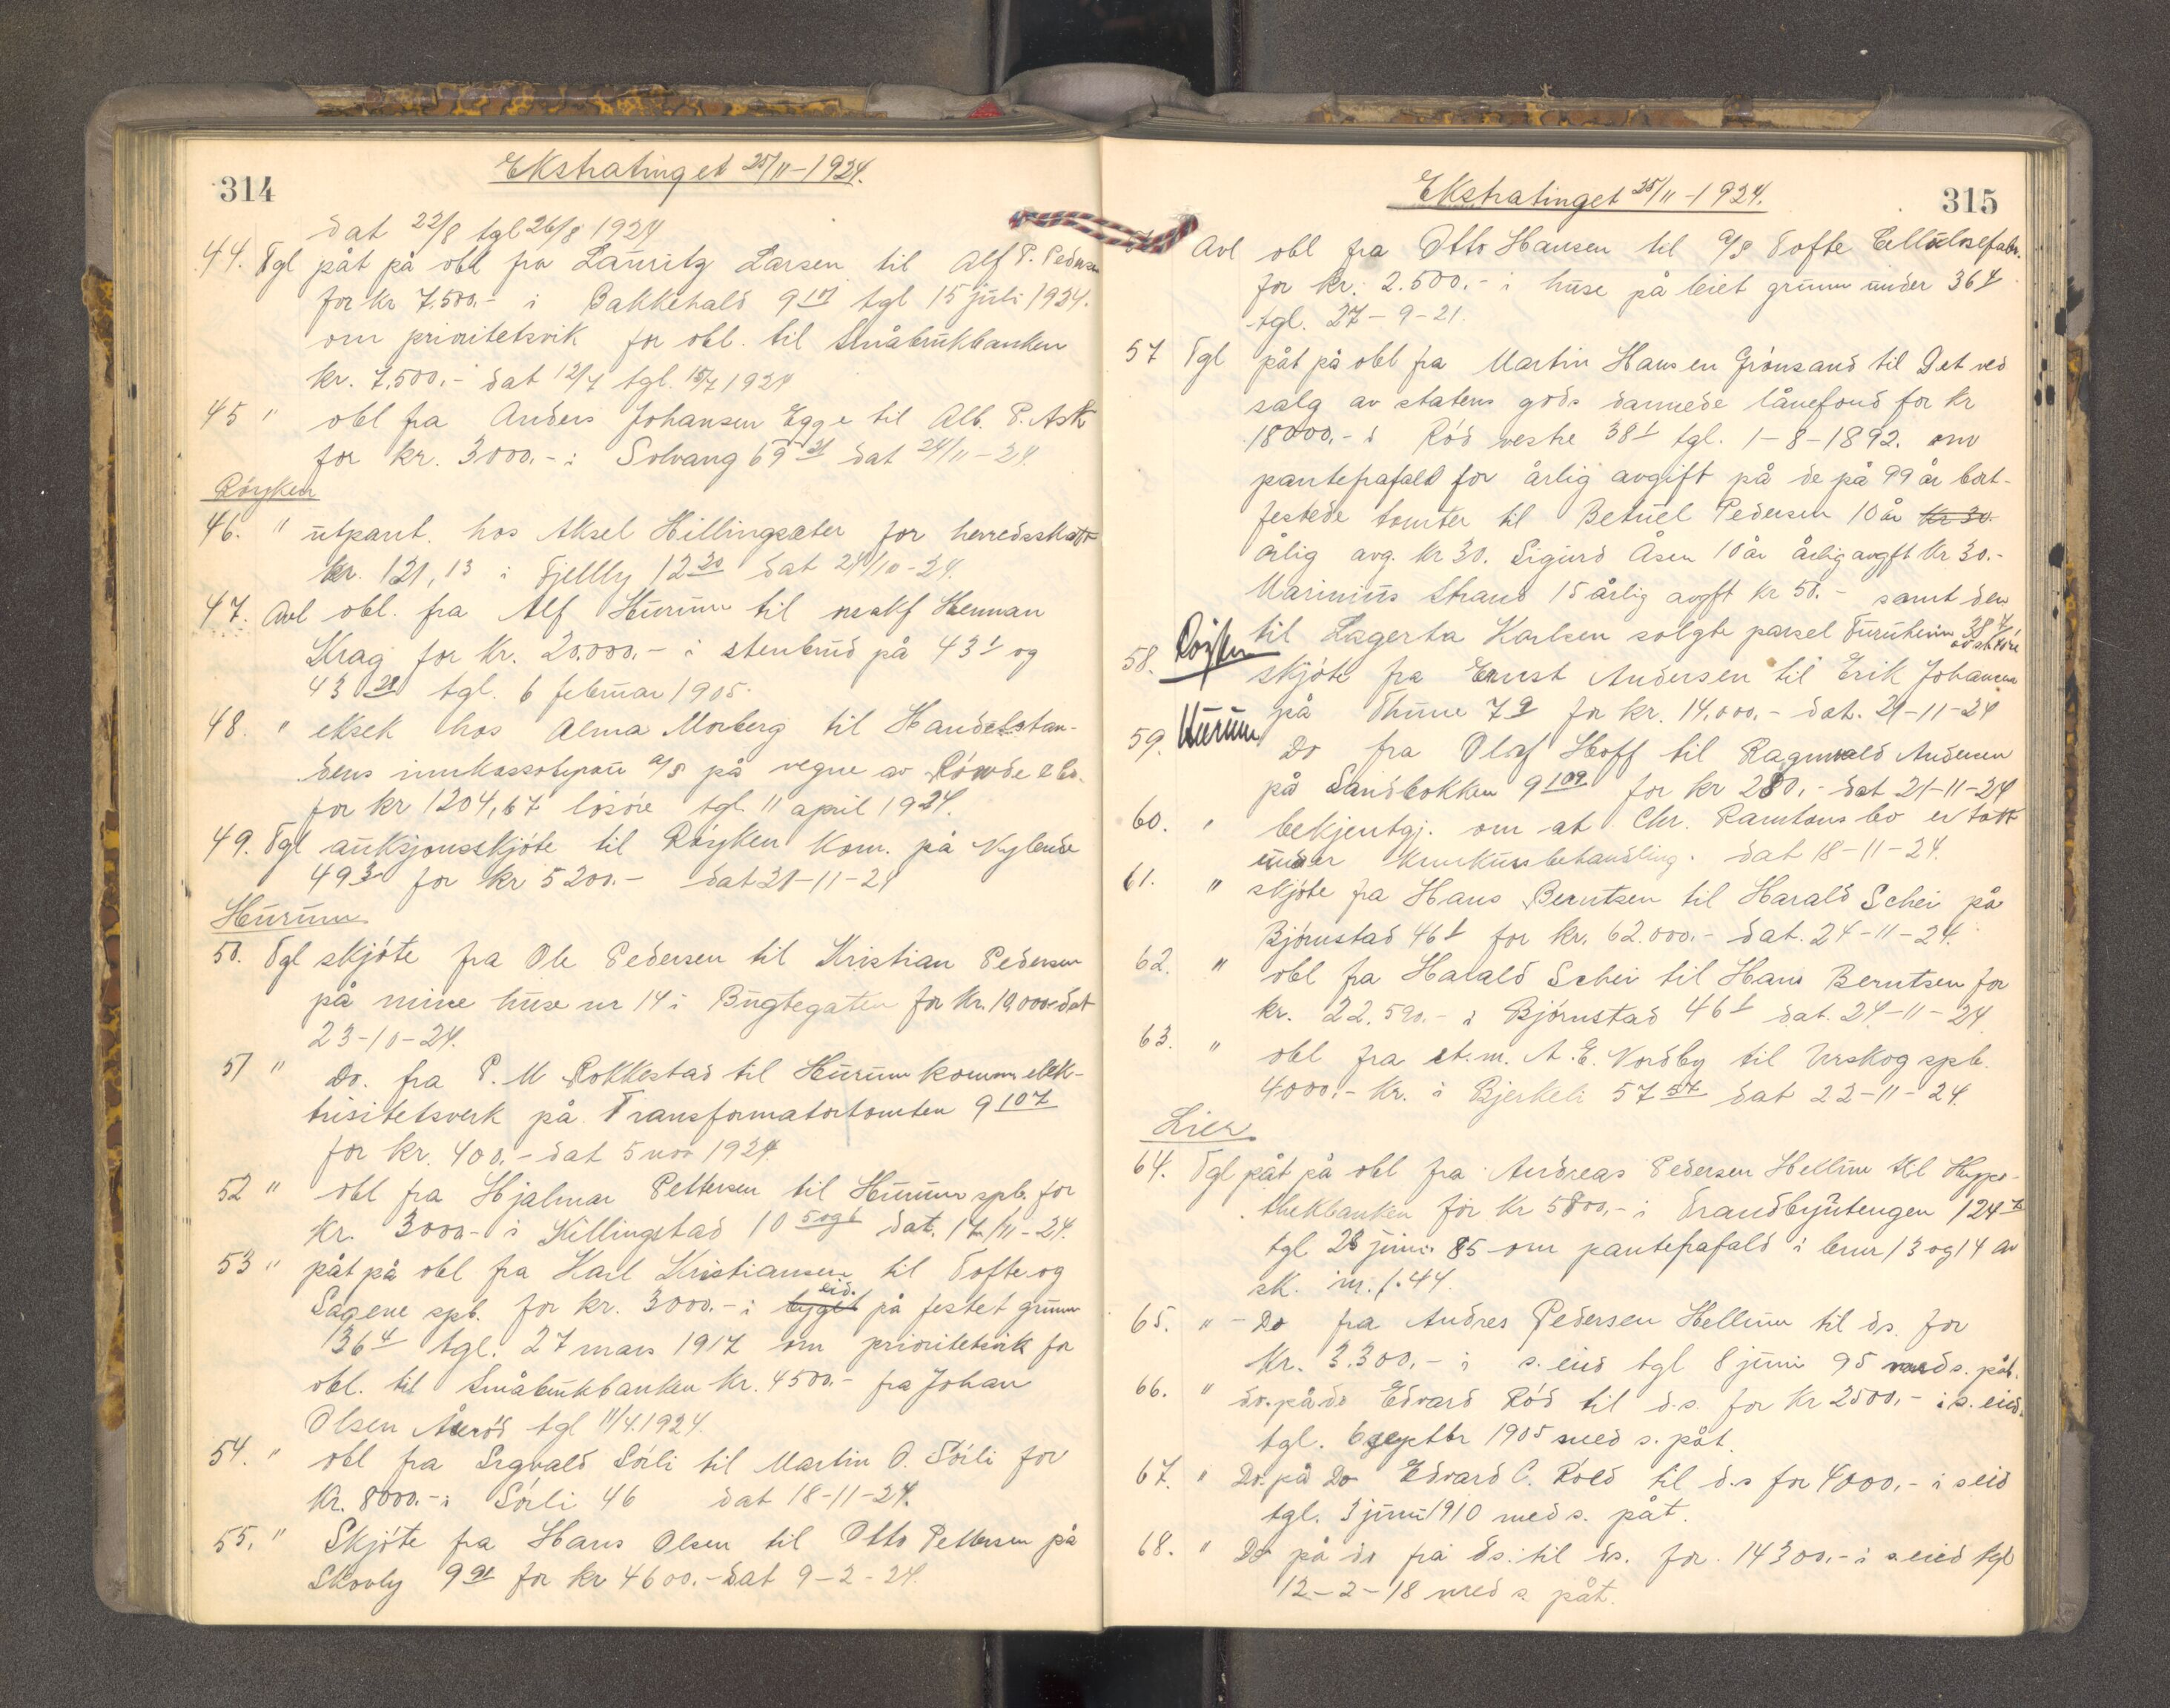 314
Ekstratinget 25/11-1924.
dat 22/8 tgl 26/8 1924
44. Tgl påt på obl fra Lauritz Larsen til Alf P. Pedersen
for kr 7.500.- i Bakkehald 9 tgl 15 juli 1924.
om prioritetsvik for obl. til Småbrukbanken
kr. 7.500.- dat 12/7 tgl. 15/7 1924
45 " obl fra Anders Johansen Egge til Alb. P. Ask
for kr. 3000.- i Solvang 69 21 dat 24/11-24.
Røyken
46. " utpant. hos Aksel Hillingsæter for herredsskatt
kr. 121,13 i Fjellby 12 20 dat 24/10-24.
47. Avl obl. fra Alf Hurum til Herman
Krag for kr. 20.000.- i stenbrud på 43 1 og
43 21 tgl. 6 februar 1905.
48. " eksek hos Alma Morberg til Handelsstan-
dens inkassobyrau a/s på vegne av & Co.
for kr 1204,67 løsøre tgl 11 april 1924.
49. Tgl auksjonsskjøte til Røyken Kom. på Nylende
49 3 for kr 5200.- dat 21-11-24
Hurum
50. Tgl skjøte fra Ole Pedersen til Kristian Pedersen
på mine huse nr 14 i Bugtegaten for kr. 19000.- dat
23-10-24.
51 " Do. fra P. M Rokkestad til Hurum komm elek-
trisitetsverk på Transformatortomten 9 107
for kr. 400.- dat 5 nov 1924.
52 " obl fra Hjalmar Pettersen til Hurum spb. for
kr. 3000.- i Killingstad 10 5 og 6 dat. 14/11-24.
53 " påt på obl fra Karl Kristiansen til Tofte og
Sagene spb. for kr. 3000.- i bygget eid. på festet grunn
36 4 tgl. 27 mars 1917 om prioritetsvik for
obl. til Småbrukbanken kr. 4500.- fra Johan
Olsen Åserød tgl 11/4.1924.
54. " obl fra Sigvald Sørli til Martin O. Sørli for
kr. 8000.- i Sørli 46 dat 18-11-24.
55. " Skjøte fra Hans Olsen til Otto Pettersen på
Skovly 9 91 for kr 4600.- dat 9-2-24.
315
Ekstratinget 25/11-1924.
Avl obl fra Otto Hansen til a/s Tofte Cellulosefabr.
for kr. 2.500.- i huse på leiet grunn under 36 4
tgl. 27-9-21.
57 Tgl påt på obl fra Martin Hansen Grønsand til Det ved
salg av statens gods dannede lånefond for kr
18000.- i Rød vestre 38 1 tgl. 1-8-1892. om
pantefrafald for årlig avgift på de på 99 år bort-
festede tomter til Betuel Pedersen 10 år kr 30.
årlig avg. kr 30. Sigurd Åsen 10 år årlig avgft kr 30.-
Marinius Strand 15 årlig avgft kr 50.- samt den
til Lagerta Karlsen solgte parsel Furuheim 38 7
58. Røyken skjøte fra Ernst Andersen til Erik Johansen
på Thune 7 9 for kr. 14.000.- dat. 21-11-24
59. Hurum Do fra Olaf Hoff til Ragnvald Andersen
på Sandbokken 9 109 for kr 280.- dat 21-11-24
60. " bekjentgj. om at Chr. Ramtons bo er tatt
under konkursbehandling. dat 18-11-24.
61. " skjøte fra Hans Berntsen til Harald Schei på
Bjørnstad 46 1 for kr. 62.000.- dat. 24-11-24.
62. " obl fra Harald Schei til Hans Berntsen for
kr. 22.590.- i Bjørnstad 46 1 dat. 24-11-24
63. " obl fra st.m. A. E. Nordby til Urskog spb.
4000.- kr. i Bjerkeli 57 57 dat 22-11-24.
Lier
64. Tgl påt på obl fra Andreas Pedersen Hellum til Hypo-
thekbanken for kr 5800.- i Brandbyutengen 124 7
tgl 28 juni 85 om pantefrafald i bnr 13 og 14 av
sk. nr. 1.44.
65. " - Do fra Andres Pedersen Hellum til ds. for
kr. 3.300.- i s. eied tgl 8 juni 95 med s. påt.
66. " do. på do Edvard Rød til d.s. for kr 2500.- i s. eied.
tgl. 6 septbr 1905 med s. påt.
67. " Do. på Do Edvard C. Røed til d.s for 4000.- i s eid
tgl. 3 juni 1910 med s. påt.
68. " Do på do fra ds. til ds. for 14300.- i s. eied tgl
12-2-18 med s. påt.